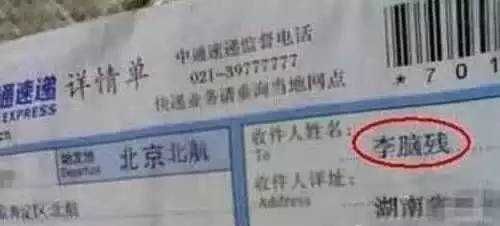 通速递 详情单
EXPRESS
中通速递监督电话
021-39777777
快递业务请垂询当地网点
*701
始发地
Departure
北京北航
收件人姓名:
To
李脑残
收件人详址:
Address
湖南省
区北航